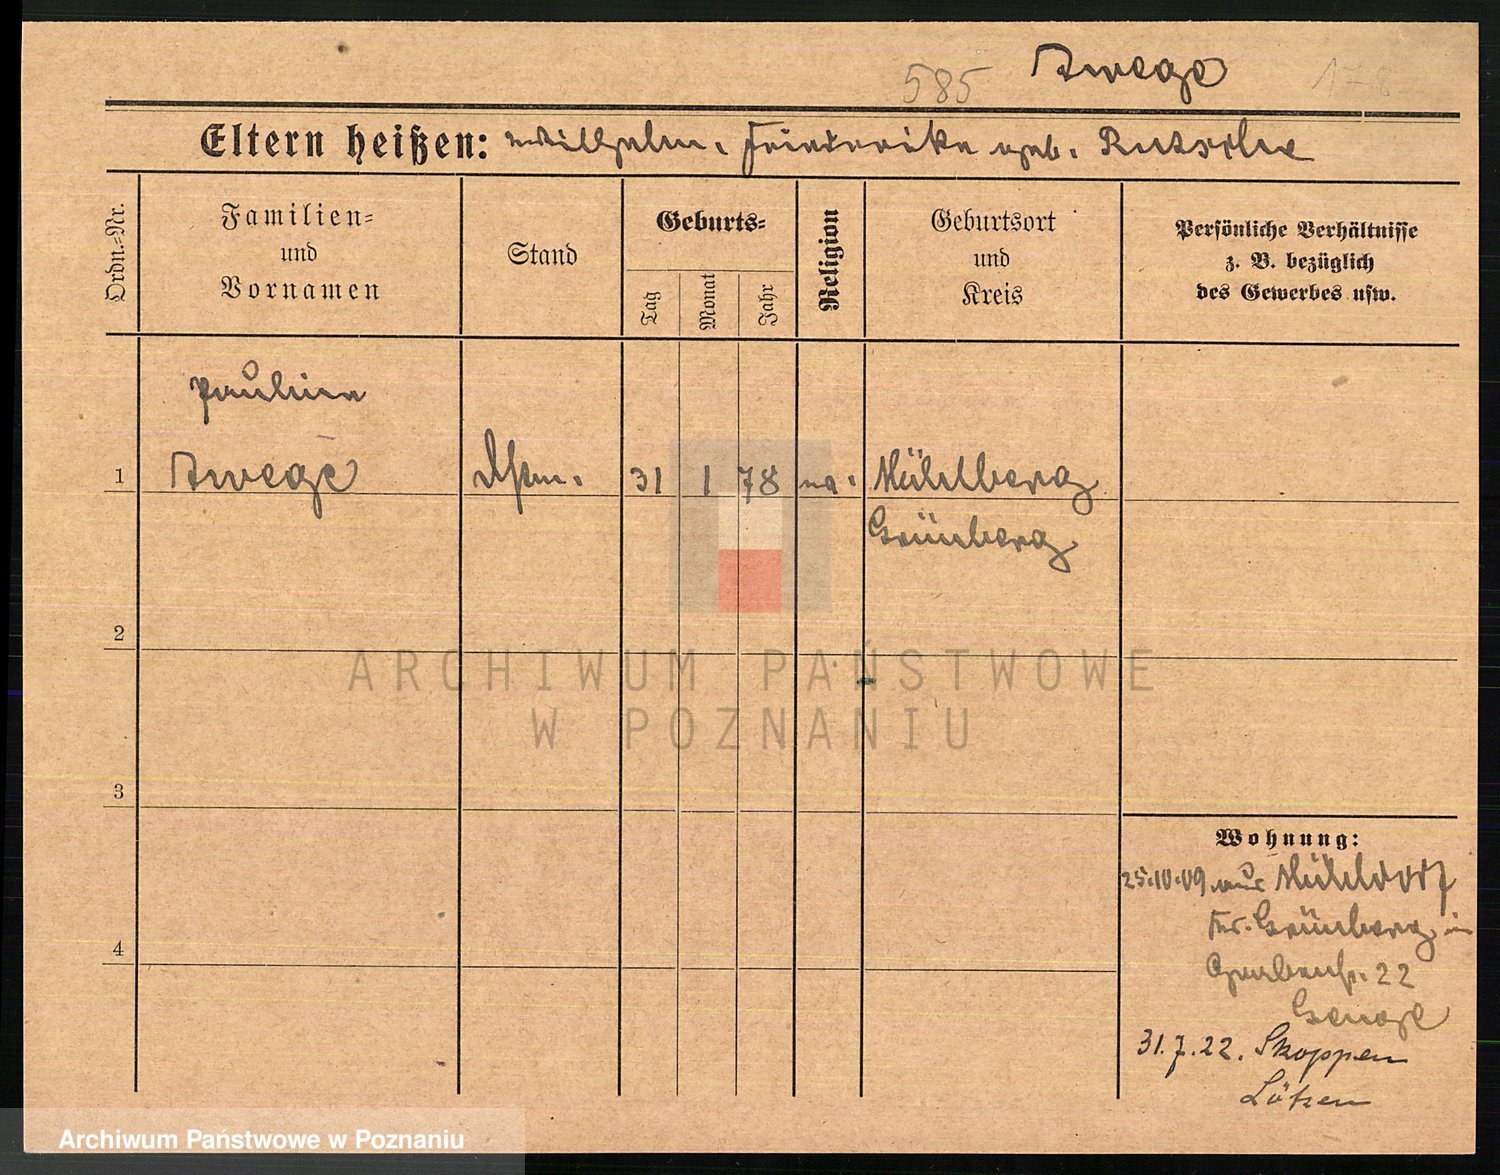 585 Zwege 178
Eltern heißen: Wilhelm. Friederike geb.
Ordn.=Nr.
Familien=
und
Vornamen
Stand
Geburts=
Tag
Monat
Jahr
Religion
Geburtsort
und
Kreis
Persönliche Verhältnisse
z. B. bezüglich
des Gewerbes usw.
Pauline
1 Zwege 31 1 78 Mühlberg
Grünberg
2
ARCHIWUM PAŃSTWOWE
W POZNANIU
3
Wohnung:
25.10.09 aus Mühldorf
Kr. Grünberg in
4
Grabenstr. 22
31.7.22. Skoppen
Lötzen
Archiwum Państwowe w Poznaniu